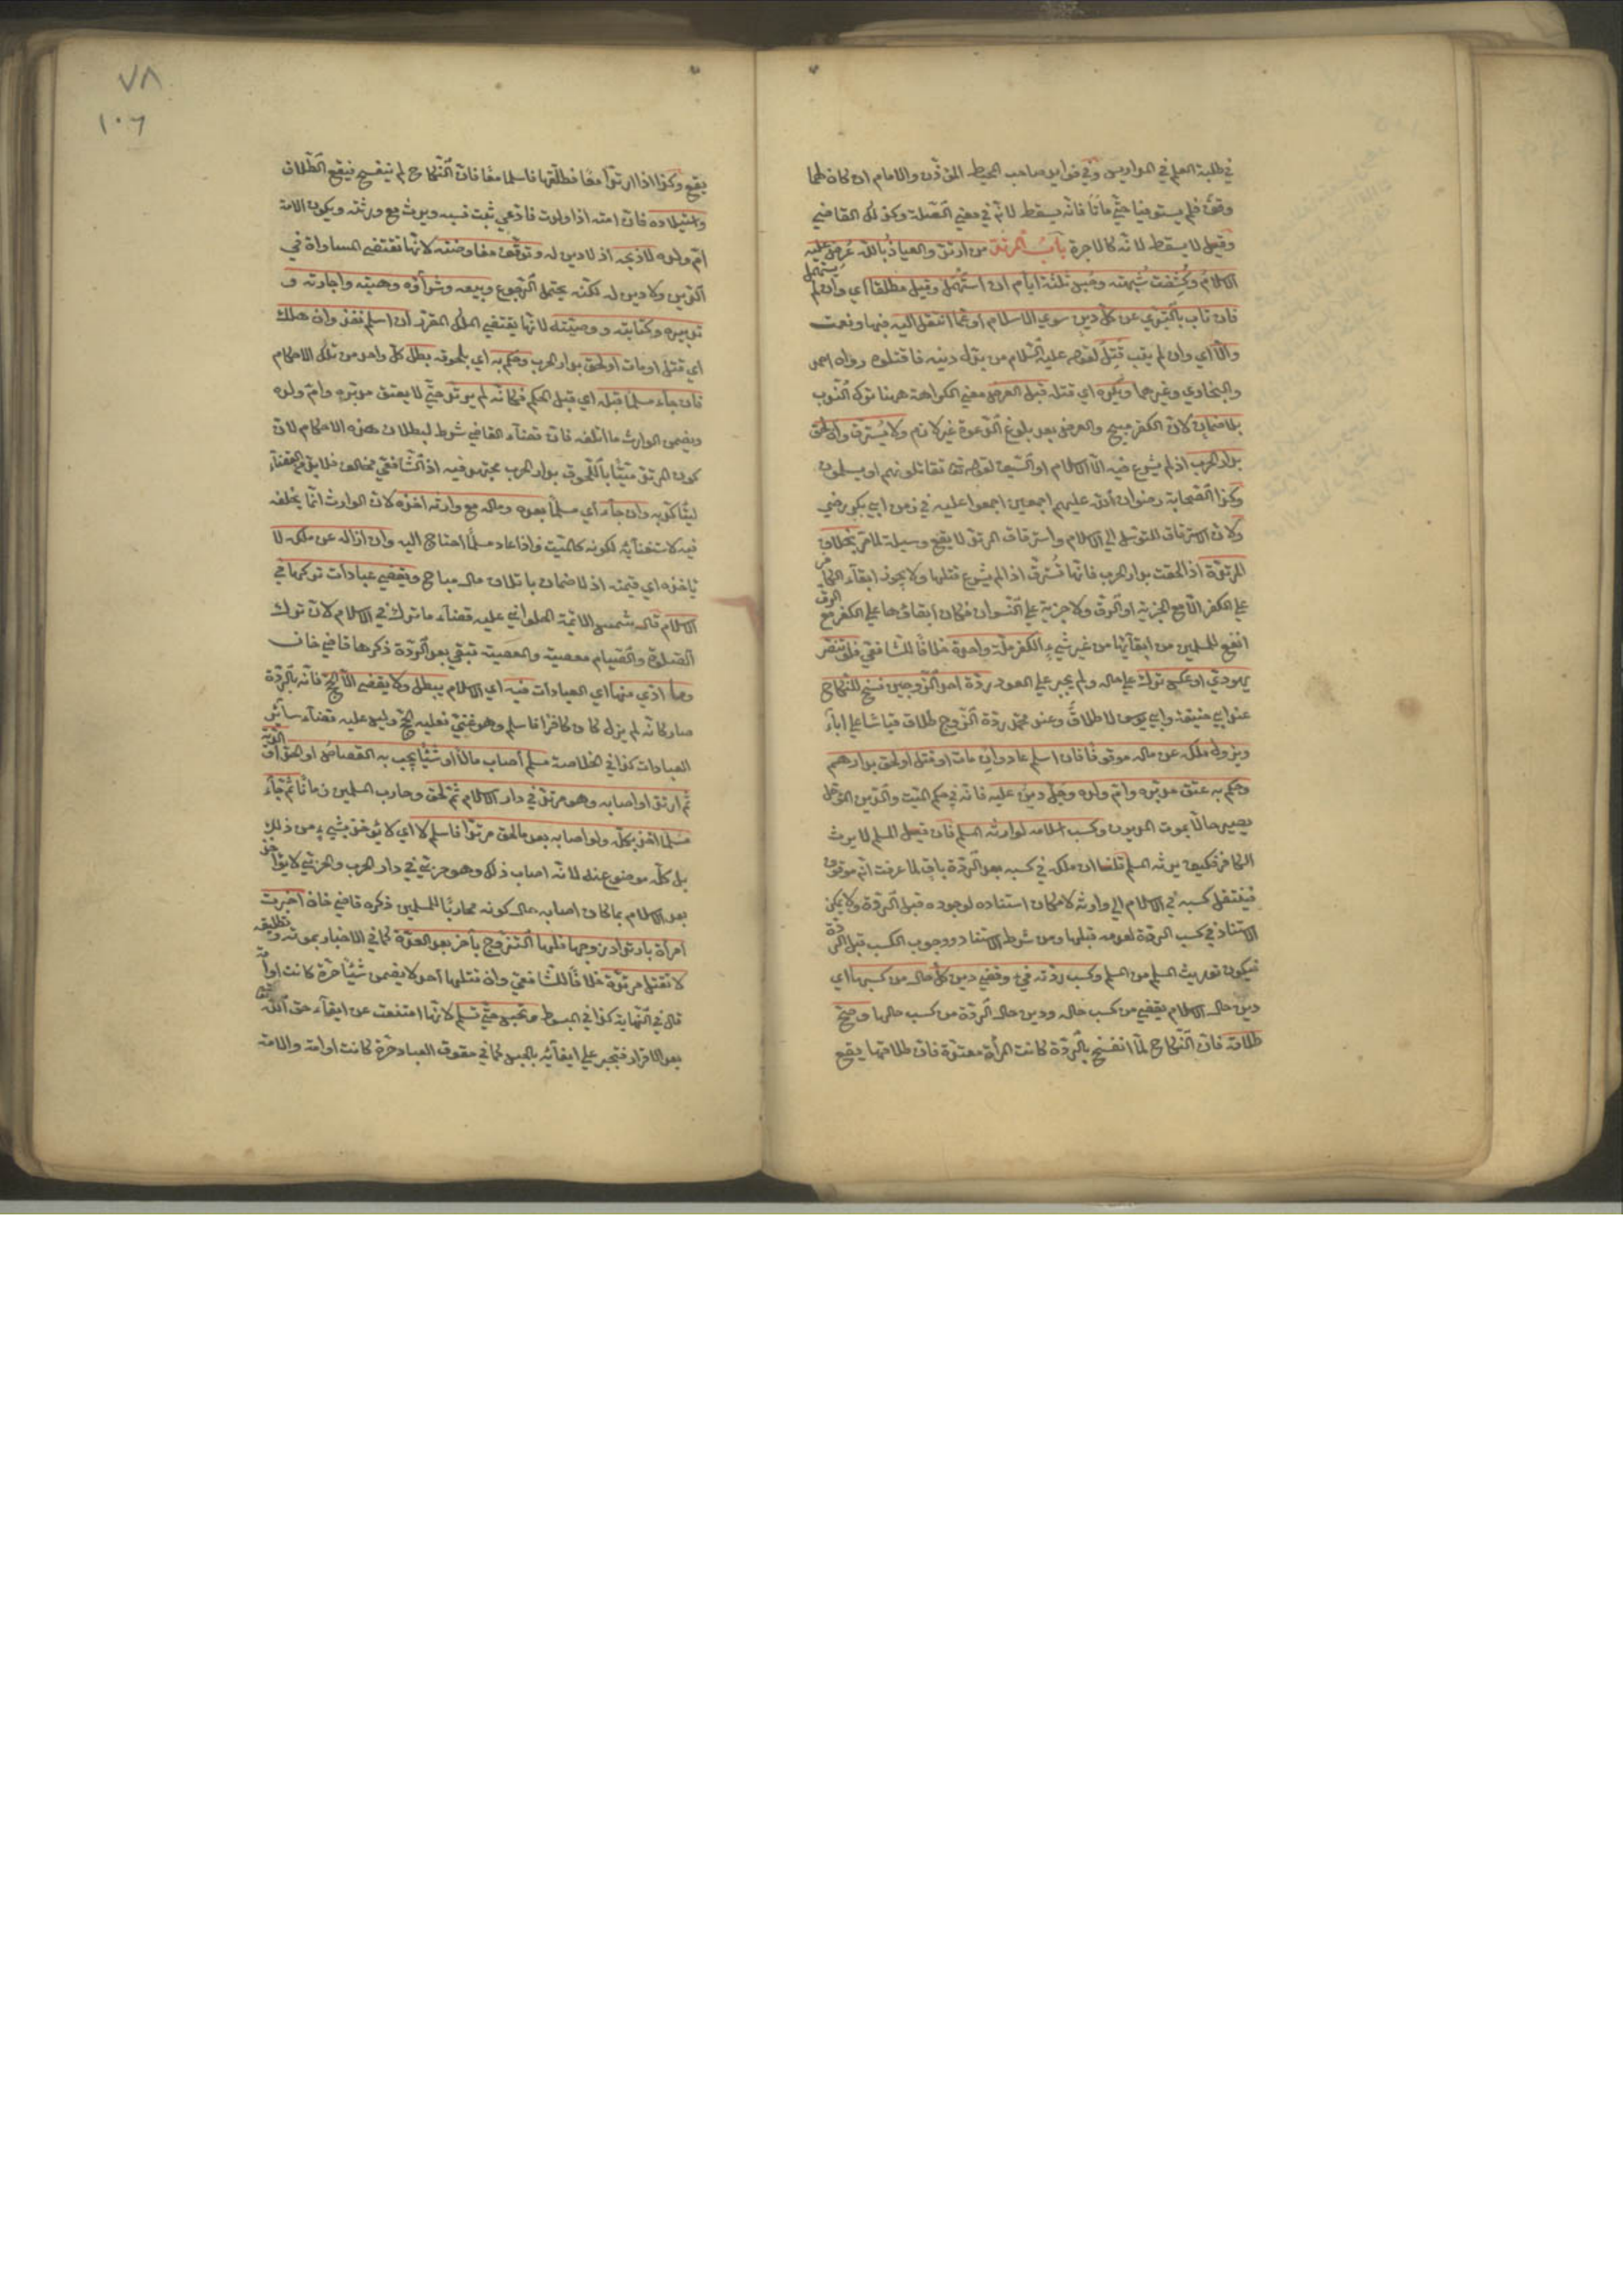 في طلبة العلم في المواريس وفي فوايد صاحب المحيط المؤذن والامام اذا كان لهما
وقف فلم يستوفيا حتى ماتا فانه يسقط لانه في معنى الصلة وكذلك القاضي
وقيل لا يسقط لانه كالاجرة باب المرتد من ارتد والعياذ بالله عرض عليه
الاسلام وكشفت شبهته وحبس ثلثة ايام ان استمهل وقيل مطلقا اي وان لم يستمهل
فان تاب بالتبري عن كل دين سوى الاسلام او عما انتقل اليه فبها ونعمت
والا اي وان لم يتب قتل لقوله عليه السلام من بدل دينه فاقتلوه رواه احمد
والبخاري وغيرهما ويكره اي قتله قبل العرض معنى الكراهة ههنا ترك الندب
بلا ضمان لان الكفر مبيح والعرض بعد بلوغ الدعوة غير لازم ولا يسترق وان لحق
بدار الحرب اذ لم يشرع فيه الا الاسلام او السيف لقوله تع تقاتلونهم او يسلمون
وكذا الصحابة رضوان الله عليهم اجمعين اجمعوا عليه في زمن ابي بكر رضي
ولان الاسترقاق للتوسل الى الاسلام واسترقاق المرتد لا يقع وسيلة لما مر بخلاف
المرتدة اذا لحقت بدار الحرب فانها تسترق اذ لم يشرع قتلها ولا يجوز ابقاء الكافر
على الكفر الا مع الجزية او الرق ولا جزية على النسوان فكان ابقاؤها على الكفر مع الرق
انفع للمسلمين من ابقائها من غير شيء الكفر ملة واحدة خلافا للشافعي فلو تنصر
يهودي او عكس ترك على حاله ولم يجبر على العود ردة احد الزوجين فسخ للنكاح
عند ابي حنيفة وابي يوسف لا طلاق وعند محمد ردة الزوج طلاق قياسا على اباء
ويزول ملكه عن ماله موقوفا فان اسلم عاد وان مات او قتل او لحق بدارهم
وحكم به عتق مدبره وام ولده وحل دين عليه فانه في حكم الميت والدين المؤجل
يصير حالا بموت المديون وكسب اسلامه لوارثه المسلم فان قيل المسلم لا يرث
الكافر فكيف يرثه المسلم قلنا ان ملكه في كسبه بعد الردة باق لما عرفت انه موقوف
فينتقل كسبه في الاسلام الى وارثه لامكان استناده لوجوده قبل الردة ولا يمكن
الاستناد في كسب الردة لعدمه قبلها ومن شرط الاستناد وجود الكسب قبل الردة
فيكون توريث المسلم من المسلم وكسب ردته فيء وقضي دين كل حال من كسبها اي
دين حال الاسلام يقضى من كسب حاله ودين حال الردة من كسب حالها وصح
طلاقه فان النكاح لما انفسخ بالردة كانت المرأة معتدة فان طلاقها يقع
٧٨
١٠٦
يقع وكذا اذا ارتدا معا فطلقها فاسلما معا فان النكاح لم ينفسخ فيقع الطلاق
واستيلاده فان امته اذا ولدت فادعى ثبت نسبه ويرث مع ورثته ويكون الامة
ام ولده لا ذبحه اذ لا دين له وتوقف مفاوضته لانها تقتضي المساواة في
الدين ولا دين له لكنه يحتمل الرجوع وبيعه وشراؤه وهبته واجارته و
تدبيره وكتابته ووصيته لانها يقتضي الملك المقرر ان اسلم نفذ وان هلك
اي قتل او مات او لحق بدار الحرب وحكم به اي بلحوقه بطل كل واحد من تلك الاحكام
فان جاء مسلما قبله اي قبل الحكم فكانه لم يرتد حتى لا يعتق مدبره وام ولده
ويضمن الوارث ما اتلفه فان قضاء القاضي شرط لبطلان هذه الاحكام لان
كون المرتد ميتا باللحوق بدار الحرب مجتهد فيه اذ الشافعي مخالف فلا بد من القضاء
ليتاكد به وان جاء اي مسلما بعده وماله مع وارثه اخذه لان الوارث انما يخلفه
فيه لاستغنائه لكونه كالميت فاذا عاد مسلما احتاج اليه وان ازاله عن ملكه لا
ياخذه اي قيمته اذ لا ضمان باتلاف مال مباح ويقضي عبادات تركها في
الاسلام قال شمس الائمة الحلواني عليه قضاء ما ترك في الاسلام لان ترك
الصلوة والصيام معصية والمعصية تبقى بعد الردة ذكرها قاضي خان
وما ادي منها اي العبادات فيه اي الاسلام يبطل ولا يقضى الا الحج فانه بالردة
صار كانه لم يزل كان كافرا فاسلم وهو غني فعليه الحج وليس عليه قضاء سائر
العبادات كذا في الخلاصة مسلم اصاب مالا او شيئا يجب به القصاص او الحد او الدية
ثم ارتد او اصابه وهو مرتد في دار الاسلام ثم لحق وحارب المسلمين زمانا ثم جاء
مسلما اخذ بكله ولو اصابه بعد ما لحق مرتدا فاسلم لا اي لا يؤخذ بشيء من ذلك
بل كله موضوع عنه لانه اصاب ذلك وهو حربي في دار الحرب والحربي لا يؤاخذ
بعد الاسلام بما كان اصابه حال كونه محاربا للمسلمين ذكره قاضي خان اخبرت
امرأة بارتداد زوجها فلها التزوج باخر بعد العدة كما في الاخبار بموته وتطليقه
لا تقتل مرتدة خلافا للشافعي وان قتلها احد لا يضمن شيئا حرة كانت او امة
قال في النهاية كذا في المبسوط وتحبس حتى تسلم لانها امتنعت عن ايفاء حق الله
بعد الاقرار فتجبر على ايفائه بالحبس كما في حقوق العباد حرة كانت او امة والامة